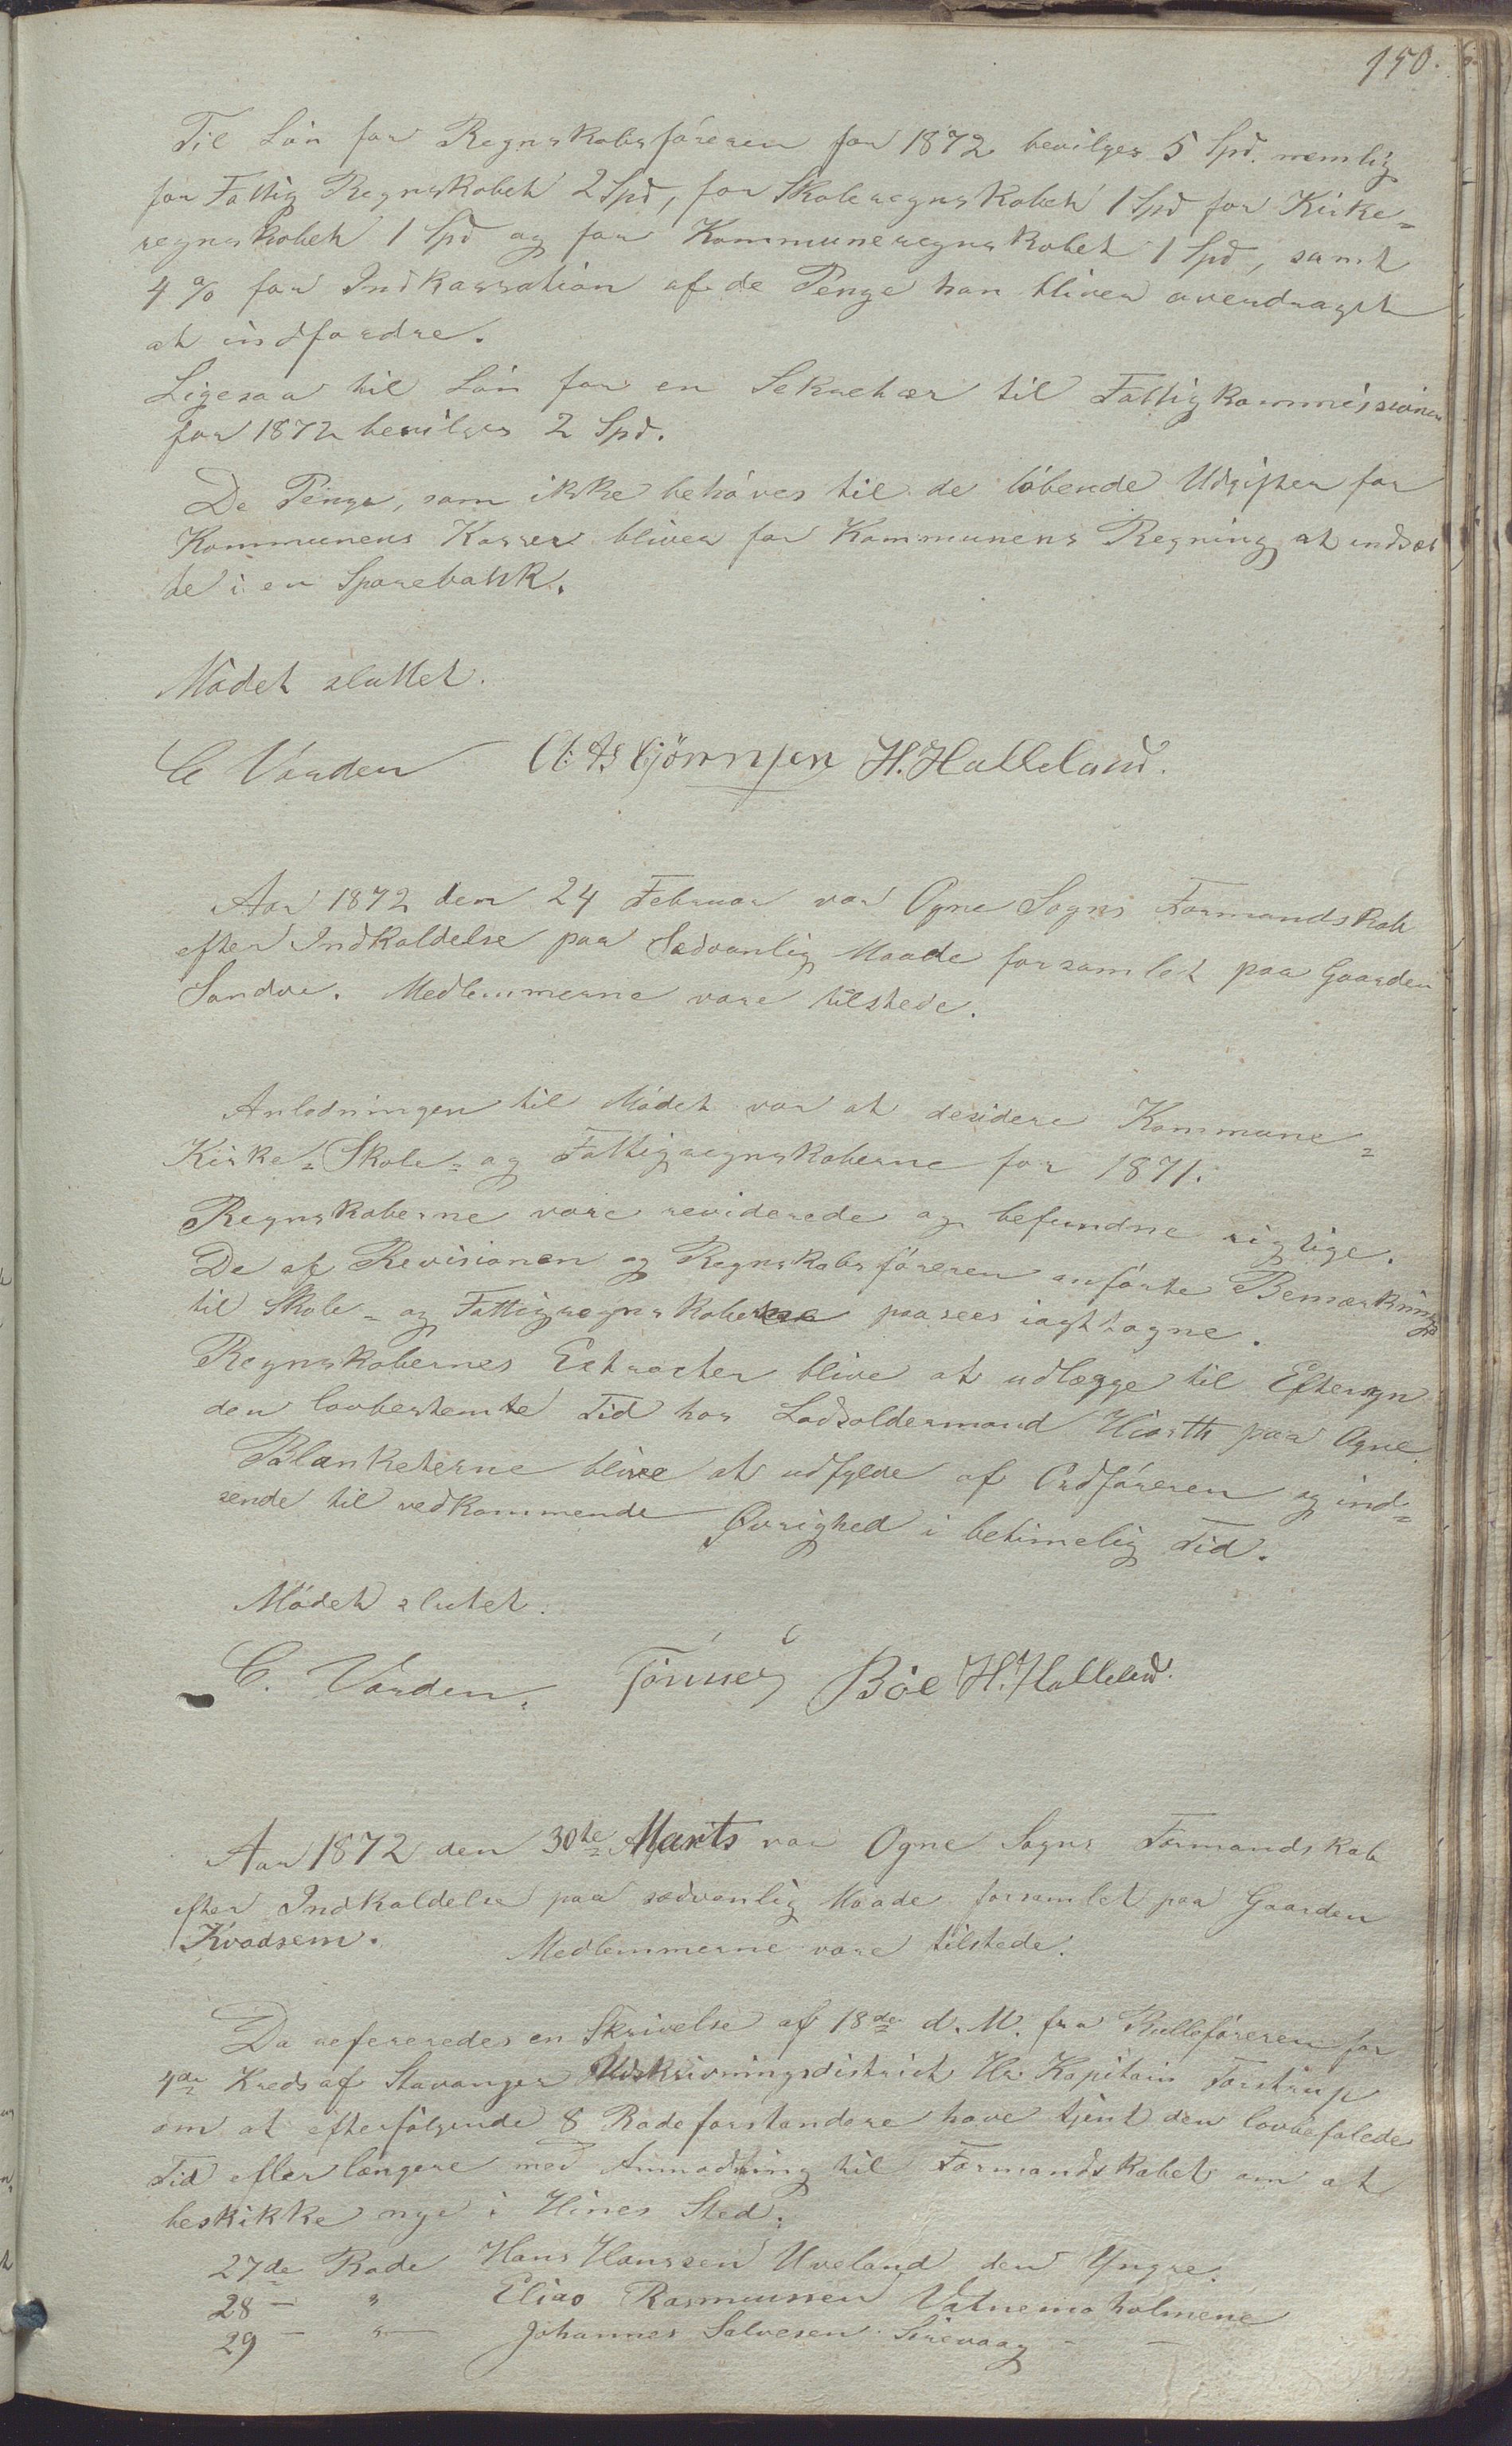 150.
Til Lön for Regnskabsföreren for 1872 bevilges 5 Spd. nemlig
for Fattig Regnskabet 2 Spd, for Skoleregnskabet 1 Spd for Kirke=
regnskabet 1 Spd og for Kommuneregnskabet 1 Spd, samt
4 % for Indkassation af de Penge han bliver overdraget
at indfordre.
Ligesaa til Lön for en Sekretær til Fattigkommissionen
for 1872 bevilges 2 Spd.
De Penge, som ikke behöves til de löbende Udgifter for
Kommunens Kasser bliver for Kommunens Regning at indsæt
te i en Sparebank.
Mödet sluttet.
C Varden H. Halleland.
Aar 1872 den 24 Februar var Ogne Sogns Formandskab
efter Indkaldelse paa Sædvanlig Maade forsamlet paa Gaarden
Sandve. Medlemmerne vare tilstede.
Anledningen til Mödet var at desidere Kommune=
Kirke= Skole= og Fattigregnskaberne for 1871.
Regnskaberne vare reviderede og befundne rigtige.
De af Revisionen og Regnskabsföreren anförte Bemærkninger
til Skole= og Fattigregnskaberne paasees iagttagne.
Regnskabernes Extracter blive at udlægge til Eftersyn
den lovbestemte Tid hos Lodsoldermand Hiorth paa Ogne.
Blanketerne blive at udfylde af Ordföreren og ind=
sende til vedkommende Øvrighed i betimelig Tid.
Mödet slutet.
C. Varden. Tönnes Böe H. Halleland.
Aar 1872 den 30te Marts var Ogne Sogns Formandskab
efter Indkaldelse paa sædvanlig Maade forsamlet paa Gaarden
Kvadsem. Medlemmerne vare tilstede.
Da refereredes en Skrivelse af 18de d. M. fra Rulleföreren for
4de Kreds af Stavanger Udskrivningsdistrict Hr. Kapitain Tostrup
om at efterfölgende 8 Rodeforstandere have tjent den lovbefalede
Tid eller længere med Anmodning til Formandskabet om at
beskikke nye i Hines Sted:
27de Rode Hans Hanssen Uveland den Yngre.
28 — " Elias Rasmussen Vatnemoholmene
29 — " — Johannes Salvesen Sirevaag — —